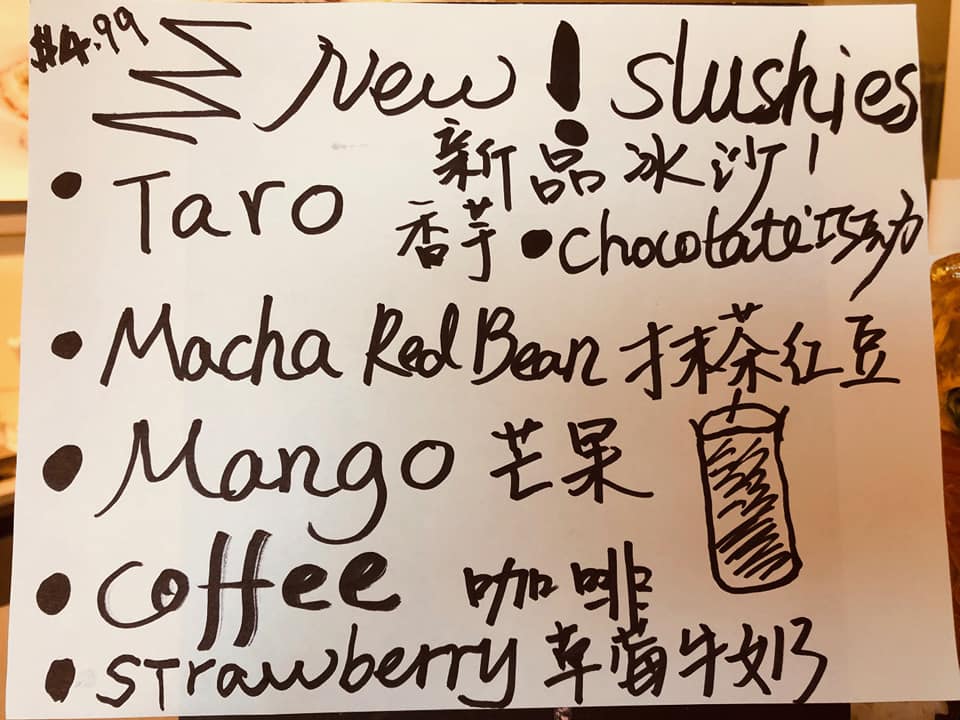 $4.99
New! Slushies
新品冰沙!
• Taro 香芋 • Chocolate 巧克力
• Macha Red Bean 抹茶红豆
• Mango 芒果
• Coffee 咖啡
• Strawberry 草莓牛奶